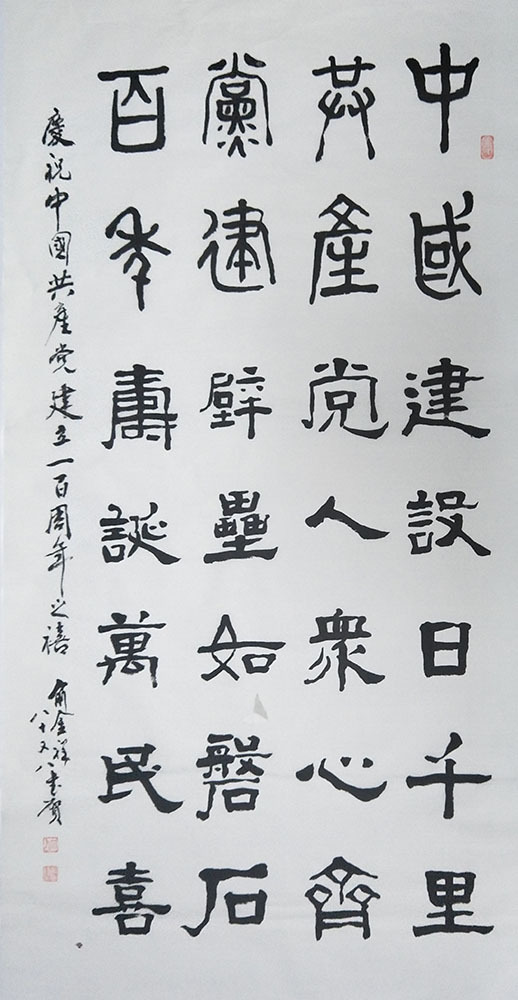 中國建設日千里
共產党人衆心齊
黨建壁壘如磐石
百年壽誕萬民喜
慶祝中國共産党建立一百周年之禧
俞金祥
八十又八書賀